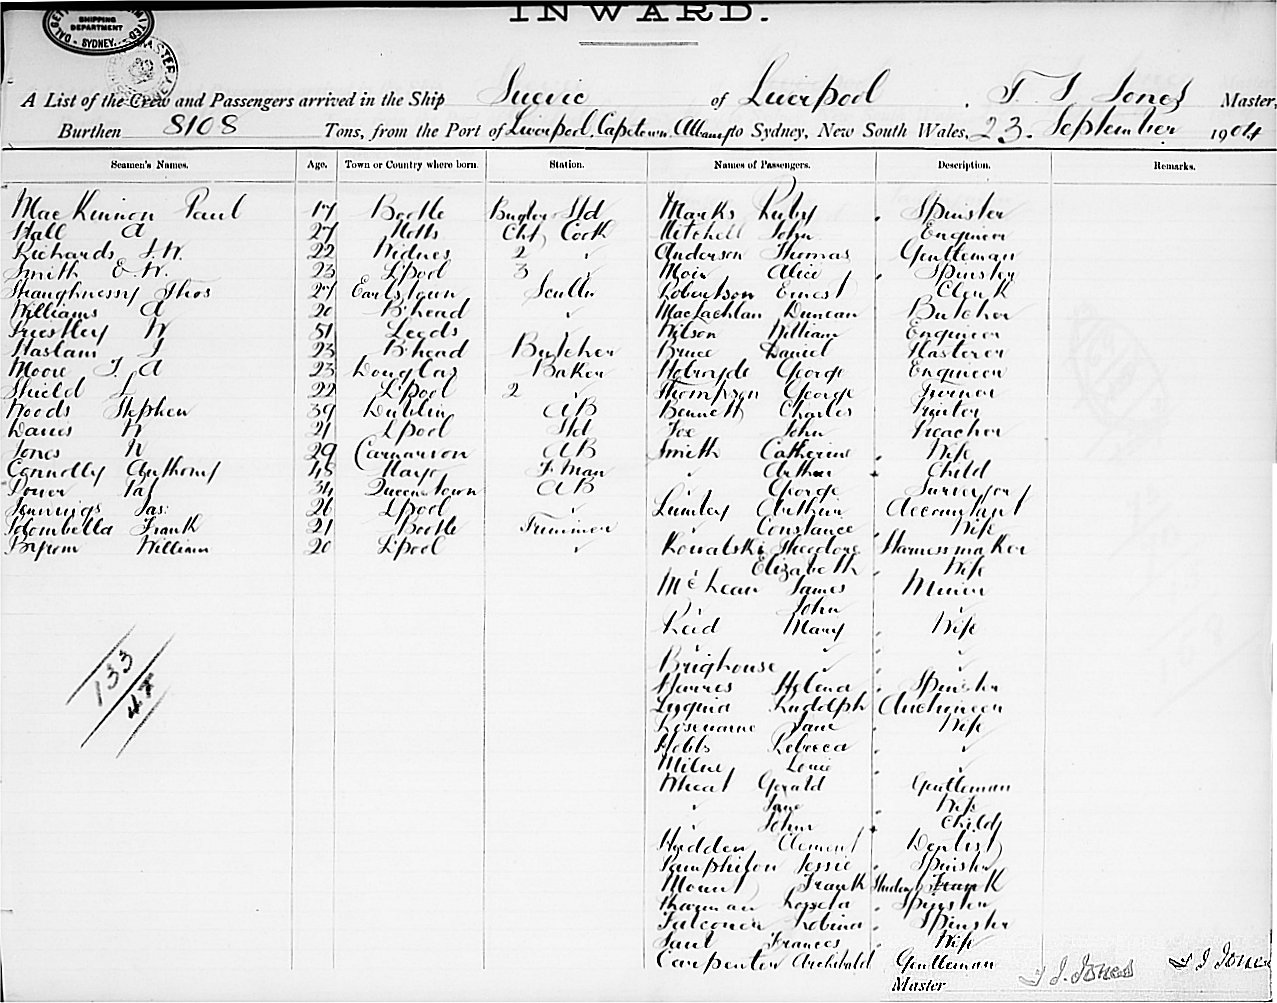 INWARD.
SHIPPING DEPARTMENT
SYDNEY.
A List of the Crew and Passengers arrived in the Ship Suevic of Liverpool, T J Jones Master,
Burthen 8108 Tons, from the Port of Liverpool, Capetown, Albany to Sydney, New South Wales, 23. September 1904
Seamen's Names. Age. Town or Country where born. Station. Names of Passengers. Description. Remarks.
MacKinnon Paul 17 Bootle Bugler Std Marks Ruby Spinster
Hall A 27 Notts Chf Cook Mitchell John Engineer
Richards J.W. 22 Widnes 2 " Anderson Thomas Gentleman
Smith E.W. 23 L'pool 3 " Moir Alice Spinster
Shaughnessy Thos 27 Earlstown Sculln Robertson Ernest Clerk
Williams A 20 B'head " MacLachlan Duncan Butcher
Priestley W 51 Leeds " Wilson William Engineer
Haslam J 23 B'head Butcher Bruce Daniel Plasterer
Moore T A 23 Douglas Baker Holroyde George Engineer
Shield J 22 L'pool 2 " Thompson George Farmer
Woods Stephen 39 Dublin AB Bennett Charles Printer
Davies W 21 L'pool Std Fox John Preacher
Jones W 29 Carnarvon AB Smith Catherine Wife
Connolly Anthony 45 Mayo F.man " Arthur Child
Power Jas 34 Queenstown AB " George Surveyor
Jennings Jas: 26 L'pool " Lumley Arthur Accountant
Colombella Frank 21 Bootle Trimmer " Constance Wife
Byrom William 20 L'pool " Kowalski Theodore Harnessmaker
" Elizabeth Wife
McLean James Miner
" John "
Reid Mary Wife
" " "
Brighouse " "
Harris Helena Spinster
133 Rudolph Auctioneer
47 Rosewarne Jane Wife
Hobbs Rebecca "
Milne Louie "
Wheat Gerald Gentleman
" Jane Wife
" John Child
Hadden Clement Dentist
Pamphilon Jessie Spinster
Mount Frank Student
Rosseta Spinster
Falconer Robina Spinster
Saul Frances Wife
Carpenter Archibald Gentleman
Master T J. Jones T J Jones